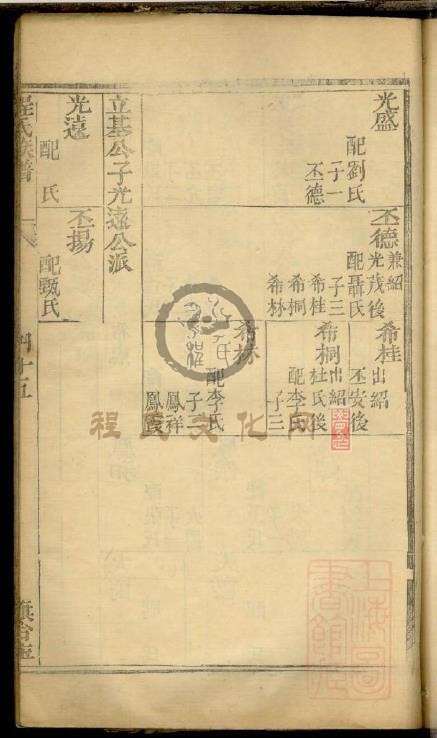 光盛
配劉氏
子一
丕德
丕德
兼紹
光茂後
配聶氏
子三
希桂
希桐
希林
希桂
出紹
丕安後
希桐
出紹
杜氏後
配李氏
子三
希林
配李氏
子二
鳳祥
鳳震
立基公子光遠公派
光遠
配 氏
丕揚
配甄氏
程氏族譜
四十五
程氏文化网
上海圖書館藏